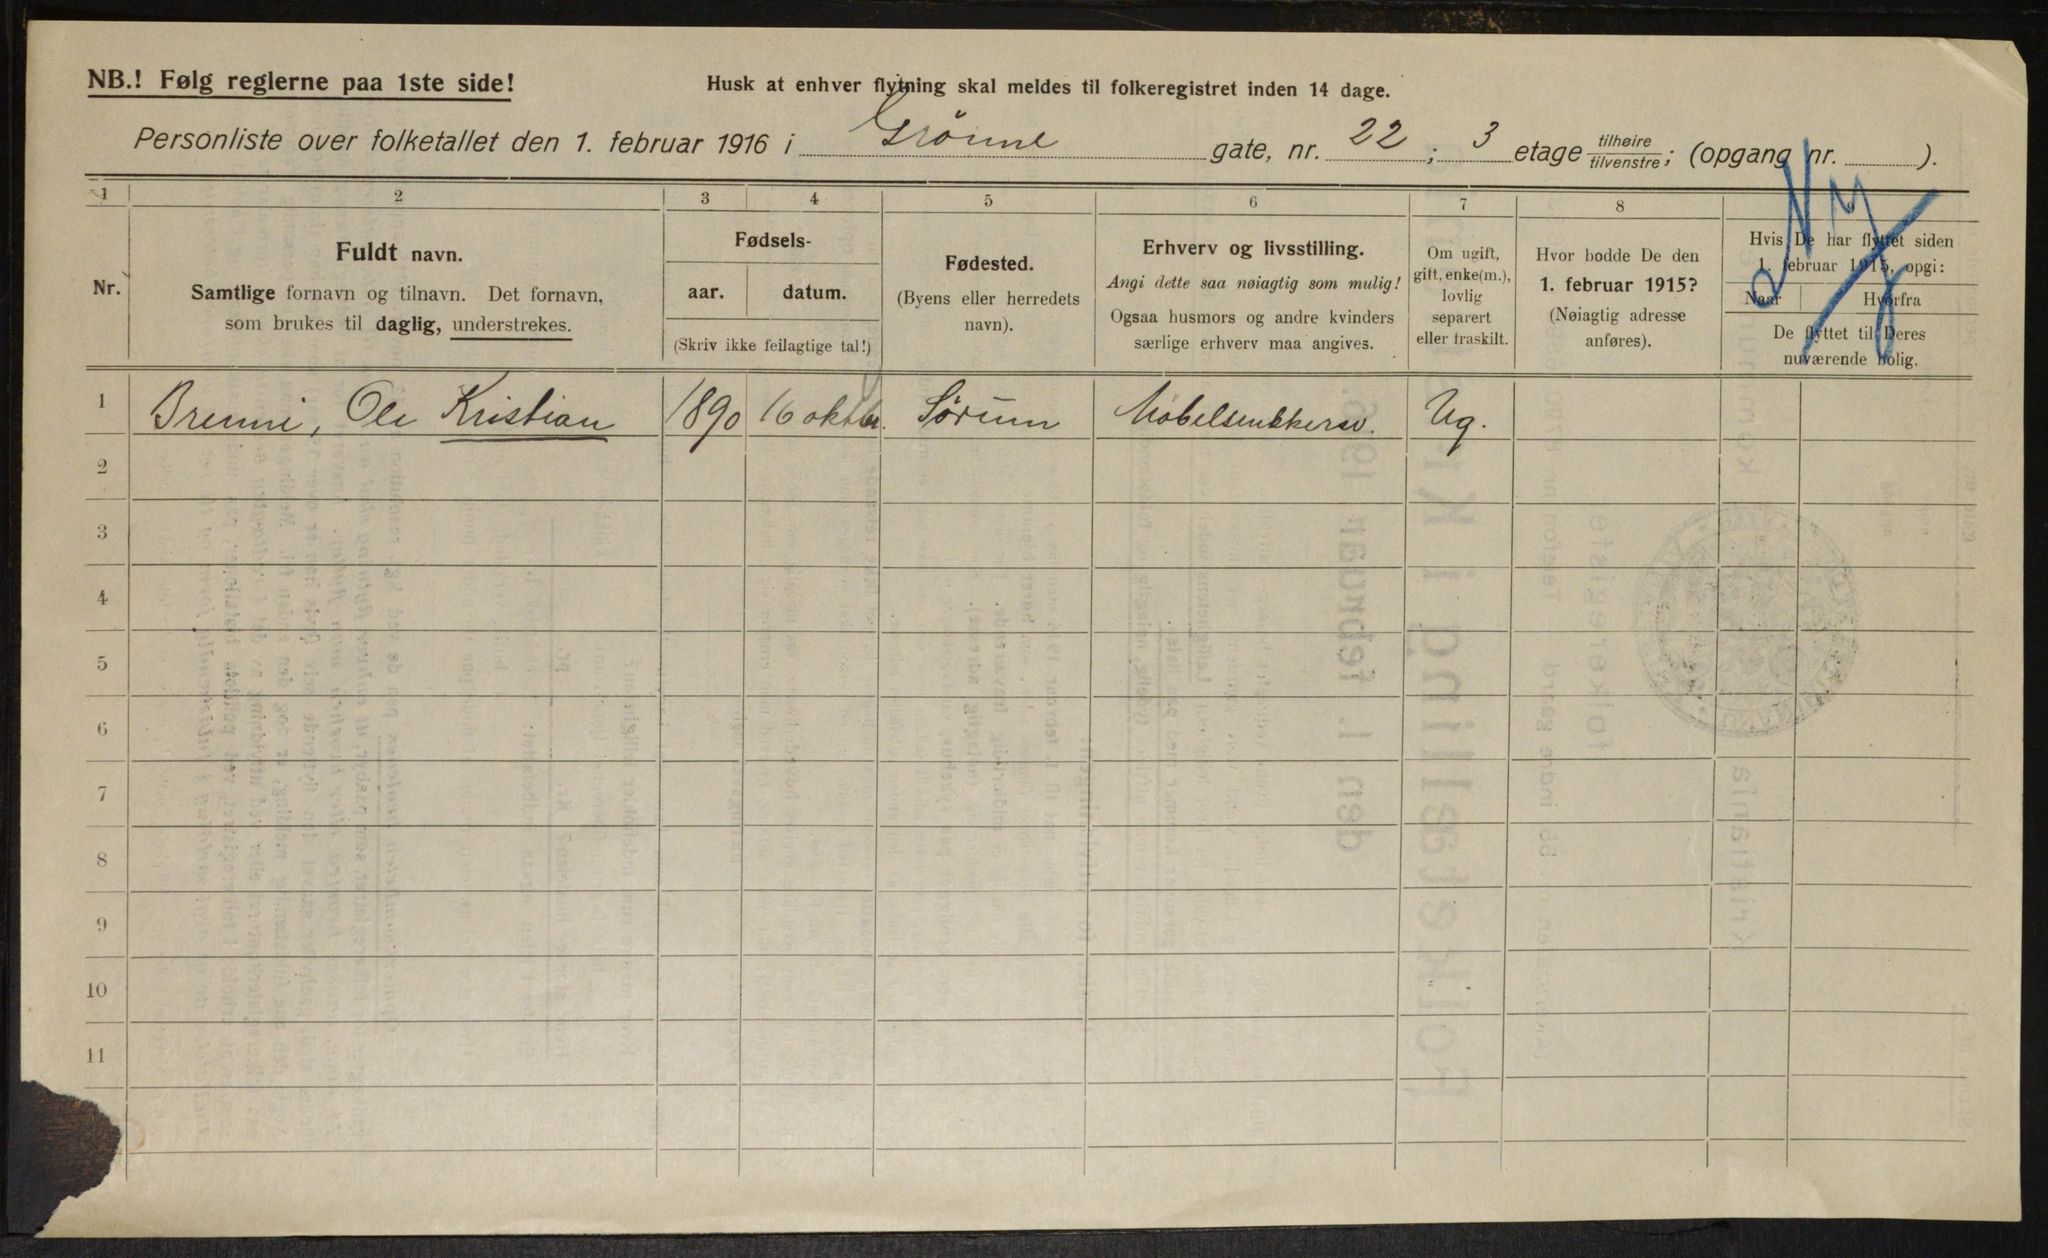 NB.! Følg reglerne paa 1ste side!
Husk at enhver flytning skal meldes til folkeregistret inden 14 dage.
Personliste over folketallet den 1. februar 1916 i Grønne gate, nr. 22; 3 etage tilhøire/tilvenstre; (opgang nr. ).
1 2 3 4 5 6 7 8 9
Nr.
Fuldt navn.
Samtlige fornavn og tilnavn. Det fornavn,
som brukes til daglig, understrekes.
Fødsels-
aar. datum.
(Skriv ikke feilagtige tal!)
Fødested.
(Byens eller herredets
navn).
Erhverv og livsstilling.
Angi dette saa nøiagtig som mulig!
Ogsaa husmors og andre kvinders
særlige erhverv maa angives.
Om ugift,
gift, enke(m.),
lovlig
separert
eller fraskilt.
Hvor bodde De den
1. februar 1915?
(Nøiagtig adresse
anføres).
Hvis De har flyttet siden
1. februar 1915, opgi:
Naar Hvorfra
De flyttet til Deres
nuværende bolig.
Ny
1 Brenni, Ole Kristian 1890 16 oktbr. Sørum Møbelsnekkersv. Ug.
2
3
4
5
6
7
8
9
10
11